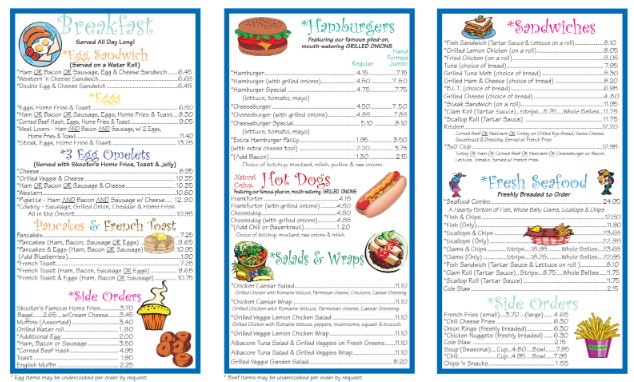 Breakfast
Served All Day Long!
*Egg Sandwich
(Served on a Water Roll)
*Ham OR Bacon OR Sausage, Egg & Cheese Sandwich....6.45
*Western 'n Cheese Sandwich.....6.65
*Double Egg & Cheese Sandwich.....6.45
*Eggs
*Eggs, Home Fries & Toast.....6.80
*Ham OR Bacon OR Sausage, Eggs, Home Fries & Toast....8.30
*Corned Beef Hash, Eggs, Home Fries & Toast.....9.05
*Meat Lovers - Ham AND Bacon AND Sausage, w/ 2 Eggs,
Home Fries & Toast.....11.40
*Steak, Eggs, Home Fries & Toast.....13.75
*3 Egg Omelets
(Served with Skooters Home Fries, Toast & Jelly)
*Cheese.....8.95
*Grilled Veggie & Cheese.....
*Ham OR Bacon OR Sausage & Cheese.....
*Western.....10.60
*Palette - Ham AND Bacon AND Sausage w/ Cheese.....12.90
*Cowboy - Sausage, Grilled Onion, Cheddar & Home Fries
All in the Omelet.....
Pancakes & French Toast
Pancakes.....7.25
*Pancakes (Ham, Bacon, Sausage OR Eggs).....
*Pancakes & Eggs (Ham, Bacon OR Sausage).....
(Add Blueberries).....1.90
*French Toast.....
*French Toast (Ham, Bacon, Sausage OR Eggs).....
*French Toast & Eggs (Ham, Bacon OR Sausage).....10.75
*Side Orders
Skooter's Famous Home Fries.....
Bagel.....2.65...w/Cream Cheese.....3.45
Muffins (Assorted).....
Grilled Water roll.....1.90
*Additional Egg.....2.00
*Ham, Bacon or Sausage.....
*Corned Beef Hash.....4.95
Toast.....1.90
English Muffin.....2.25
* Egg items may be undercooked per order by request.
*Hamburgers
Featuring our famous piled-on,
mouth-watering GRILLED ONIONS
Regular
Hand Formed Jumbo
*Hamburger.....4.15.....7.15
*Hamburger (with grilled onions).....4.50.....7.50
*Hamburger Special.....4.75.....7.75
(lettuce, tomato, mayo)
*Cheeseburger.....4.50.....7.50
*Cheeseburger (with grilled onions).....4.85.....7.85
*Cheeseburger Special.....5.10.....8.10
(lettuce, tomato, mayo)
*Extra Hamburger Patty.....1.95.....3.50
(with extra cheese too!).....2.20.....
*(Add Bacon).....1.30.....2.15
Choice of ketchup, mustard, relish, pickles & raw onions
Natural Casing
Hot Dogs
Featuring our famous piled-on, mouth-watering GRILLED ONIONS
Frankfurter.....4.15
Frankfurter (with grilled onions).....4.50
Cheesedog.....4.50
Cheesedog (with grilled onions).....4.85
*(Add Chili or Sauerkraut).....1.20
Choice of ketchup, mustard, raw onions & relish
*Salads & Wraps
*Chicken Caesar Salad.....11.10
Grilled Chicken with Romaine lettuce, Parmesan Cheese, Croutons, Caesar Dressing
*Chicken Caesar Wrap.....11.10
Grilled Chicken with Romaine lettuce, Parmesan Cheese, Caesar Dressing
*Grilled Veggie Lemon Chicken Salad.....11.10
Grilled Chicken with Romaine lettuce, peppers, mushrooms, squash & broccoli
*Grilled Veggie Lemon Chicken Wrap.....11.10
Albacore Tuna Salad & Grilled Veggies on Fresh Greens.....11.10
Albacore Tuna Salad & Grilled Veggie Wrap.....11.10
Grilled Veggie Garden Salad.....8.20
* Beef items may be undercooked per order by request.
*Sandwiches
*Fish Sandwich (Tartar Sauce & Lettuce on a roll).....8.10
*Grilled Lemon Chicken (on a roll).....8.05
*Fried Chicken (on a roll).....8.05
Tuna (choice of bread).....7.95
Grilled Tuna Melt (choice of bread).....8.30
Grilled Ham & Cheese (choice of bread).....8.20
*B.L.T. (choice of bread).....6.95
Grilled Cheese (choice of bread).....4.80
*Steak Sandwich (on a roll).....11.95
*Clam Roll (Tartar Sauce)...Strips.....8.75...Whole Bellies...11.75
*Scallop Roll (Tartar Sauce).....11.75
Reuben.....12.20
Corned Beef OR Pastrami OR Turkey on Grilled Rye Bread, Swiss Cheese,
Sauerkraut & Dressing. Served w/ French Fries
*3ell Club.....12.95
Turkey OR Ham OR Corned Beef OR Pastrami OR Cheeseburger w/ Bacon,
Lettuce, Tomato. Served w/ French Fries
*Fresh Seafood
Freshly Breaded to Order
*Seafood Combo.....24.95
A Hearty Portion of Fish, Whole Belly Clams, Scallops & Chips
*Fish & Chips.....
*Fish (Only).....11.50
*Scallops & Chips.....
*Scallops (Only).....22.95
*Clams & Chips.....Strips...15.95.....Whole Bellies...
*Clams (Only).....Strips...13.95.....Whole Bellies...
*Fish Sandwich (Tartar Sauce & Lettuce on a roll).....8.10
*Clam Roll (Tartar Sauce)...Strips...8.75.....Whole Bellies...11.75
*Scallop Roll (Tartar Sauce).....11.75
Cole Slaw.....2.15
*Side Orders
French Fries (small)...3.70...(large).....4.65
*Chili Cheese Fries.....6.30
Onion Rings (freshly breaded).....6.30
*Chicken Nuggets (freshly breaded).....6.30
Cole Slaw.....2.15
Soup (Seasonal)...Cup...4.80...Bowl.....
*Chili.....Cup...4.95...Bowl.....
Chips 'n Salsa.....